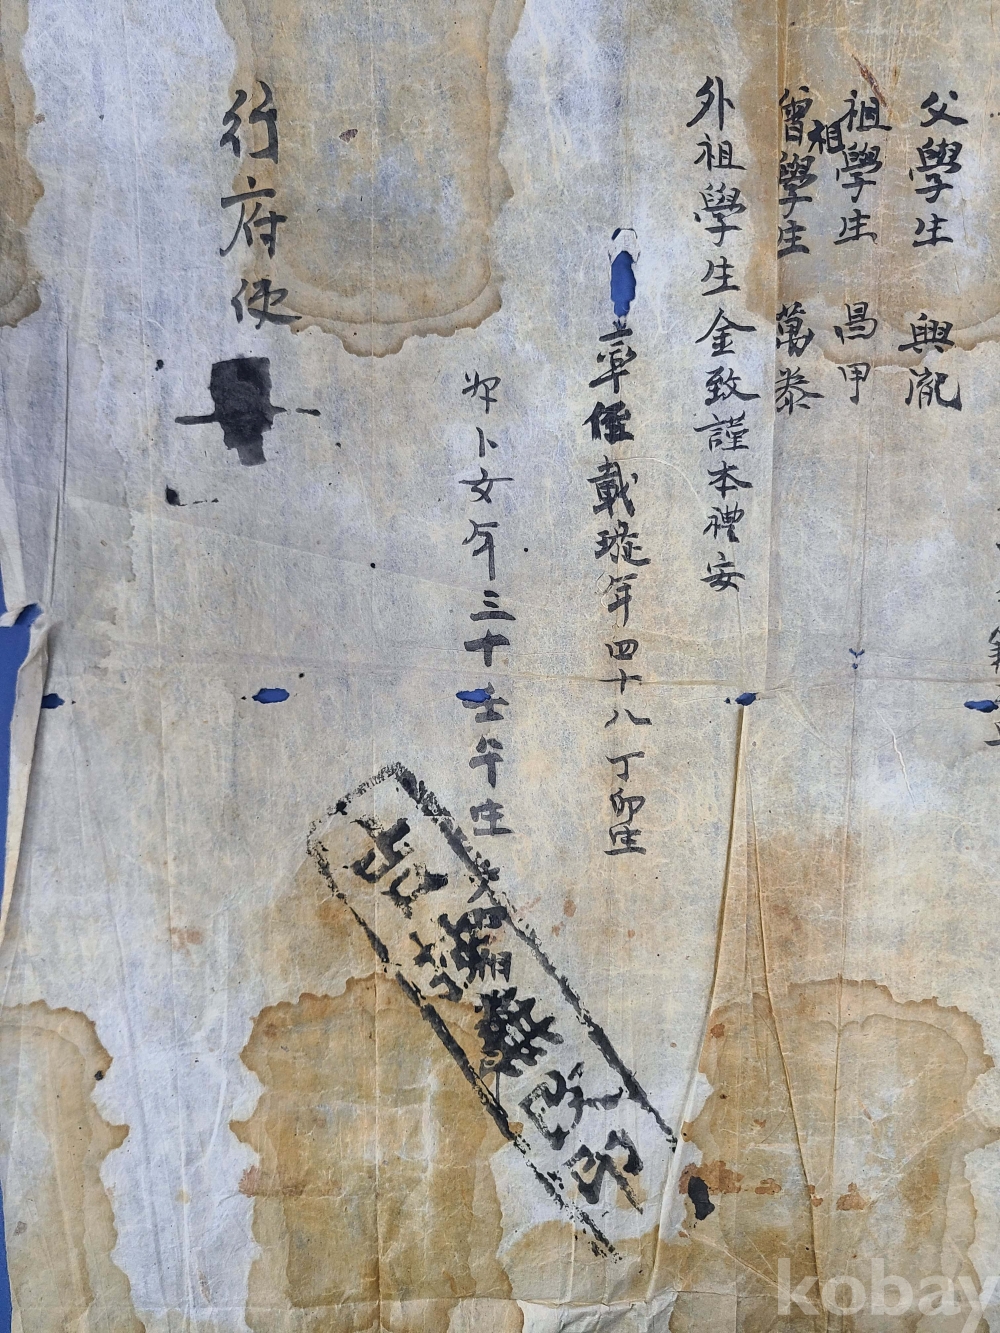 父學生 興胤
祖學生 昌甲
曾祖學生 萬泰
外祖學生金致謹本禮安
率侄載璇年四十八丁卯生
婢卜女年三十壬午生
行府使
kobay